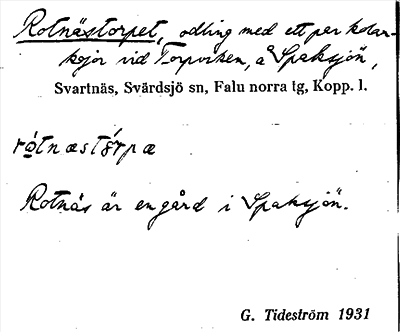 Rotnästorpet, odling med ett par kolar-
kojor vid Torpviken, å Spaksjön,
Svartnäs, Svärdsjö sn, Falu norra tg, Kopp. l.
Rotnäs är en gård i Spaksjön.
G. Tideström 1931